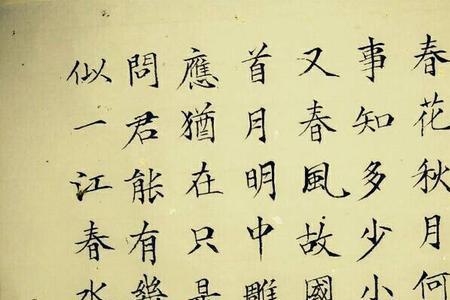 春花秋月何
事知多少小
又春風故國
首月明中雕
應猶在只是
問君能有幾
似一江春水